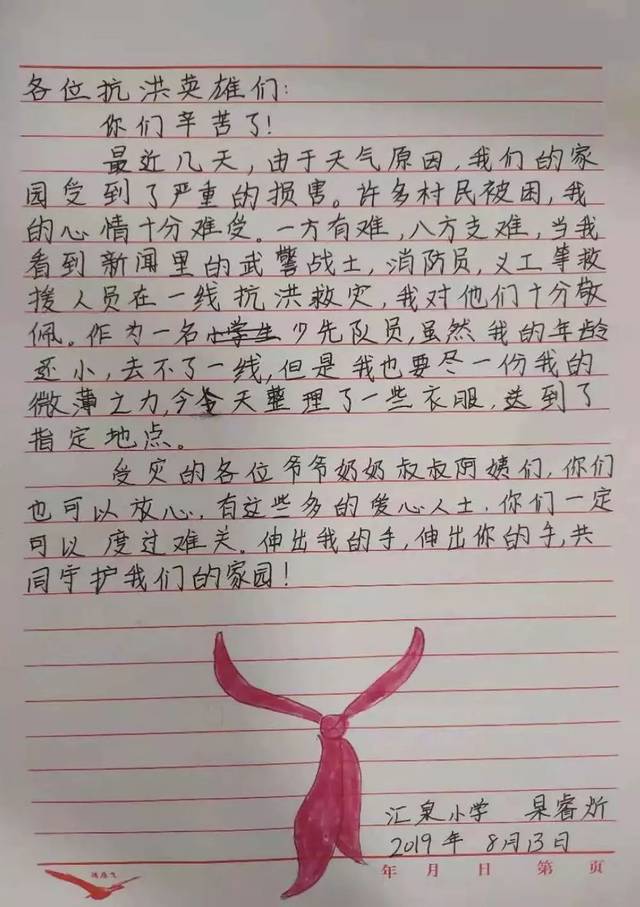 各位抗洪英雄们:
你们辛苦了!
最近几天,由于天气原因,我们的家
园受到了严重的损害。许多村民被困,我
的心情十分难受。一方有难,八方支难,当我
看到新闻里的武警战士,消防员,义工等救
援人员在一线抗洪救灾,我对他们十分敬
佩。作为一名小学生少先队员,虽然我的年龄
还小,去不了一线,但是我也要尽一份我的
微薄之力,今天整理了一些衣服,送到了
指定地点。
受灾的各位爷爷奶奶叔叔阿姨们,你们
也可以放心,有这些多的爱心人士,你们一定
可以度过难关。伸出我的手,伸出你的手,共
同守护我们的家园!
汇泉小学 杲睿炘
2019年 8月13日
年 月 日 第 页